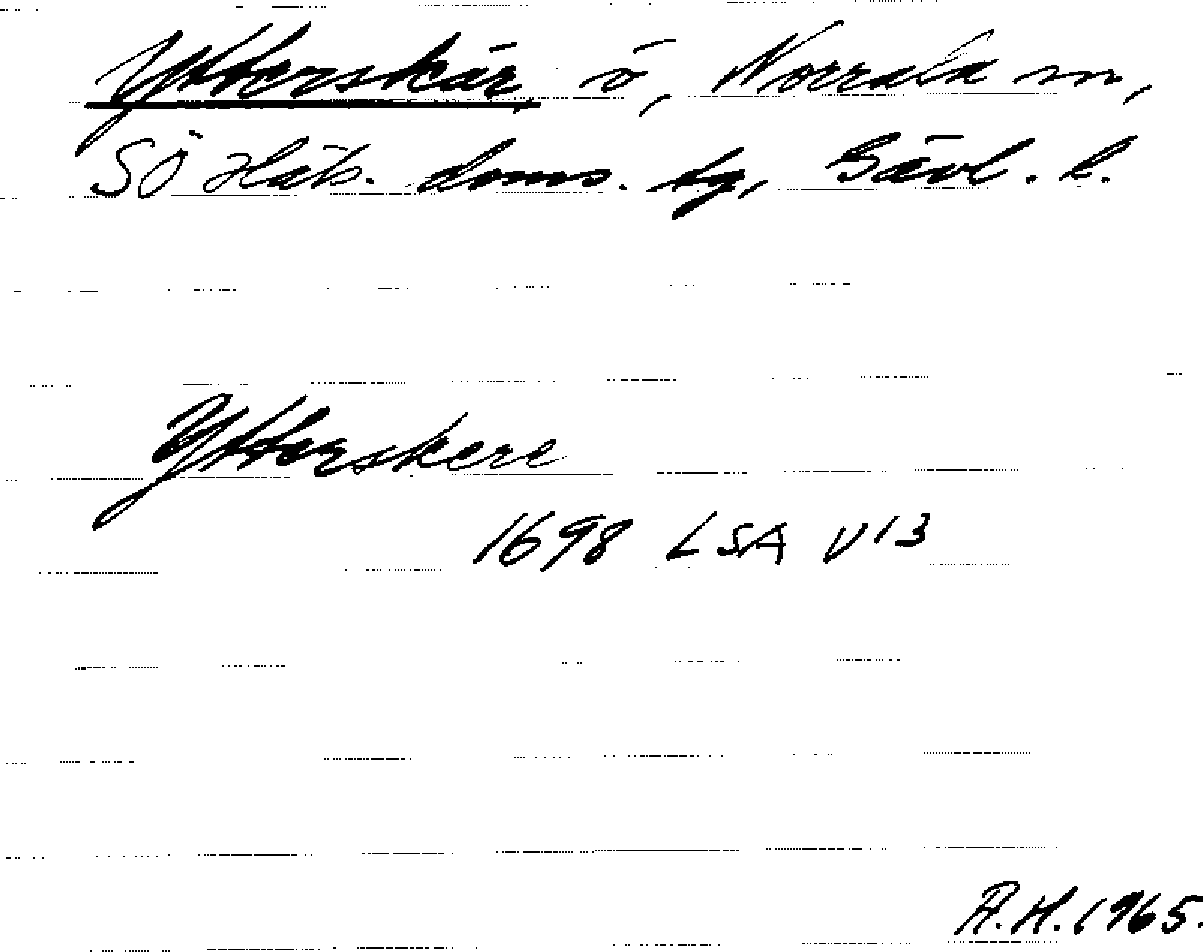 Ytterskär, ö, Norrala sn,
SÖ Häls. doms. tg, Gävl. l.
Ytterskere
1698 LSA V13
A.H. 1965.